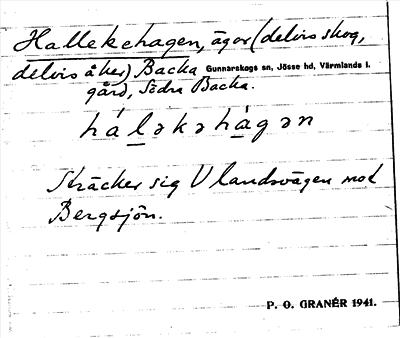 Hallekehagen, ägor (delvis skog,
delvis åker) Backa Gunnarskogs sn, Jösse hd, Värmlands l.
gård, Södra Backa.
hálǝkǝhágǝn
Sträcker sig V landsvägen mot
Bergsjön.
P. O. GRANÉR 1941.